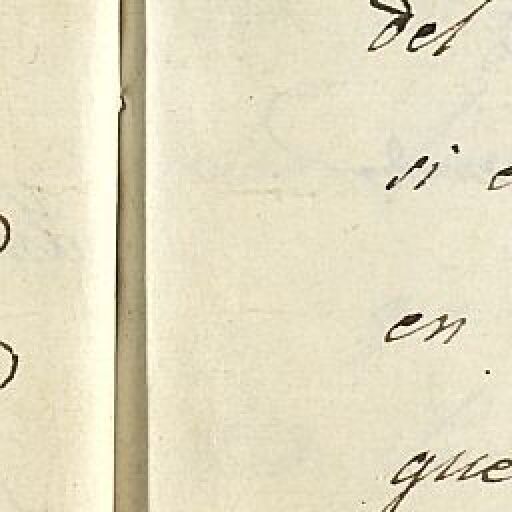 del
si
en
que